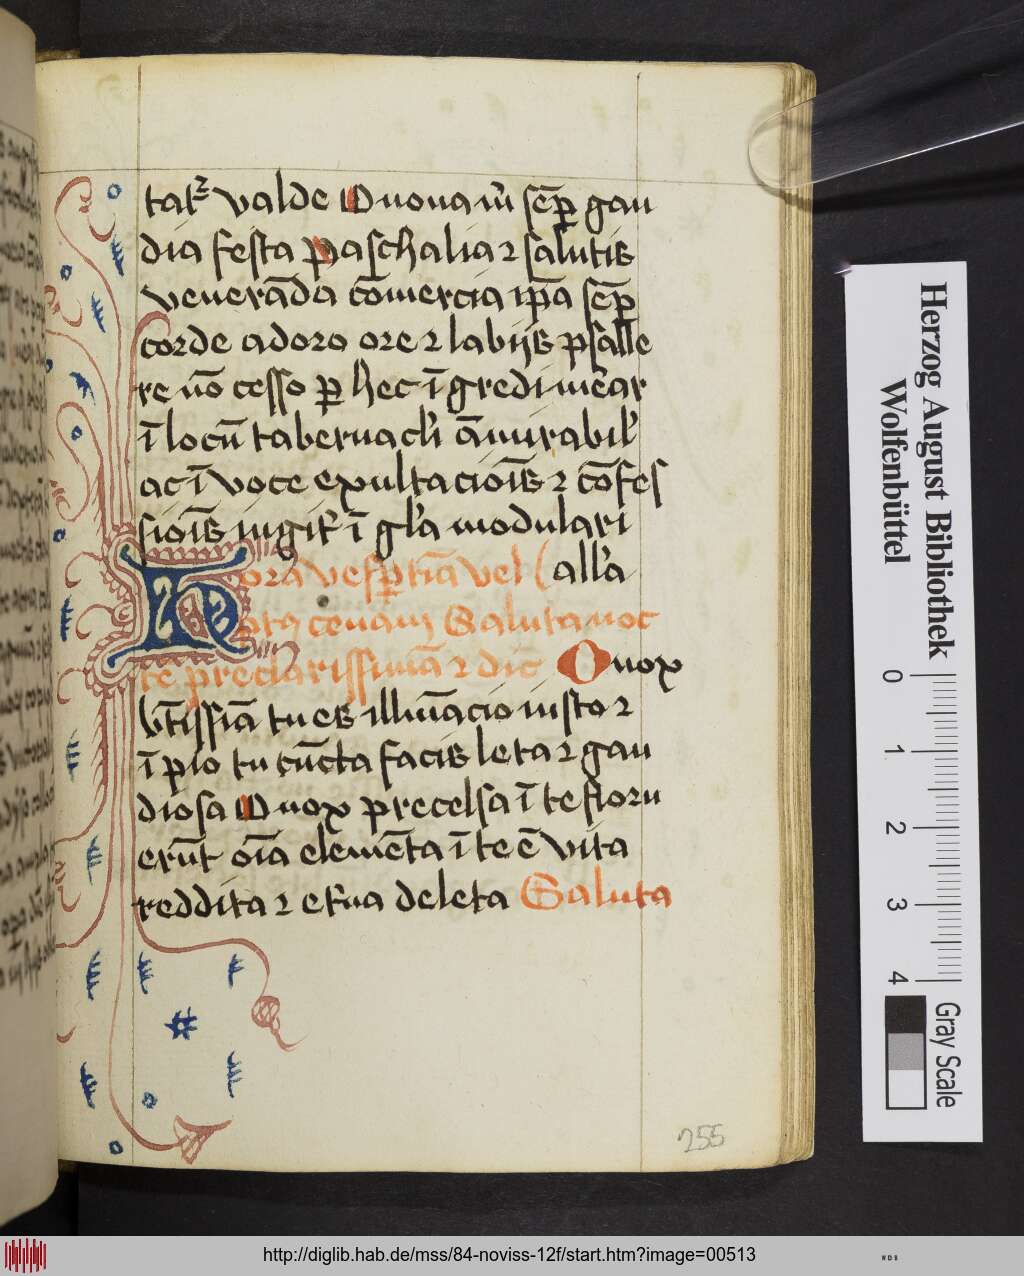 tatꝫ valde O nouam sēꝑ gau
dia festa paschalia ⁊ salutis
venerāda cōmercia ip̄a sēꝑ
corde adoro ore ⁊ labijs psalle
re nō cesso ꝑ hec īgredi mear
ī locū tabernacl'i āmirabil'
ac ī voce exultaciōis ⁊ cōfes
siōis iugit' ī gl'a modulari
Hora vesp̄tīa vel all'a
cenam Saluta noc
te preclarissimā ⁊ dic̄ O nox
b̄tissīa tu es illuīacio iusto⁊
ī p̄lo tu cūcta facis leta ⁊ gau
diosa O nox precelsa ī te floru
erūt oīa elemēta ī te ē vita
reddita ⁊ et'na deleta Saluta
255
Herzog August Bibliothek
Wolfenbüttel
0 1 2 3 4
Gray Scale
http://diglib.hab.de/mss/84-noviss-12f/start.htm?image=00513